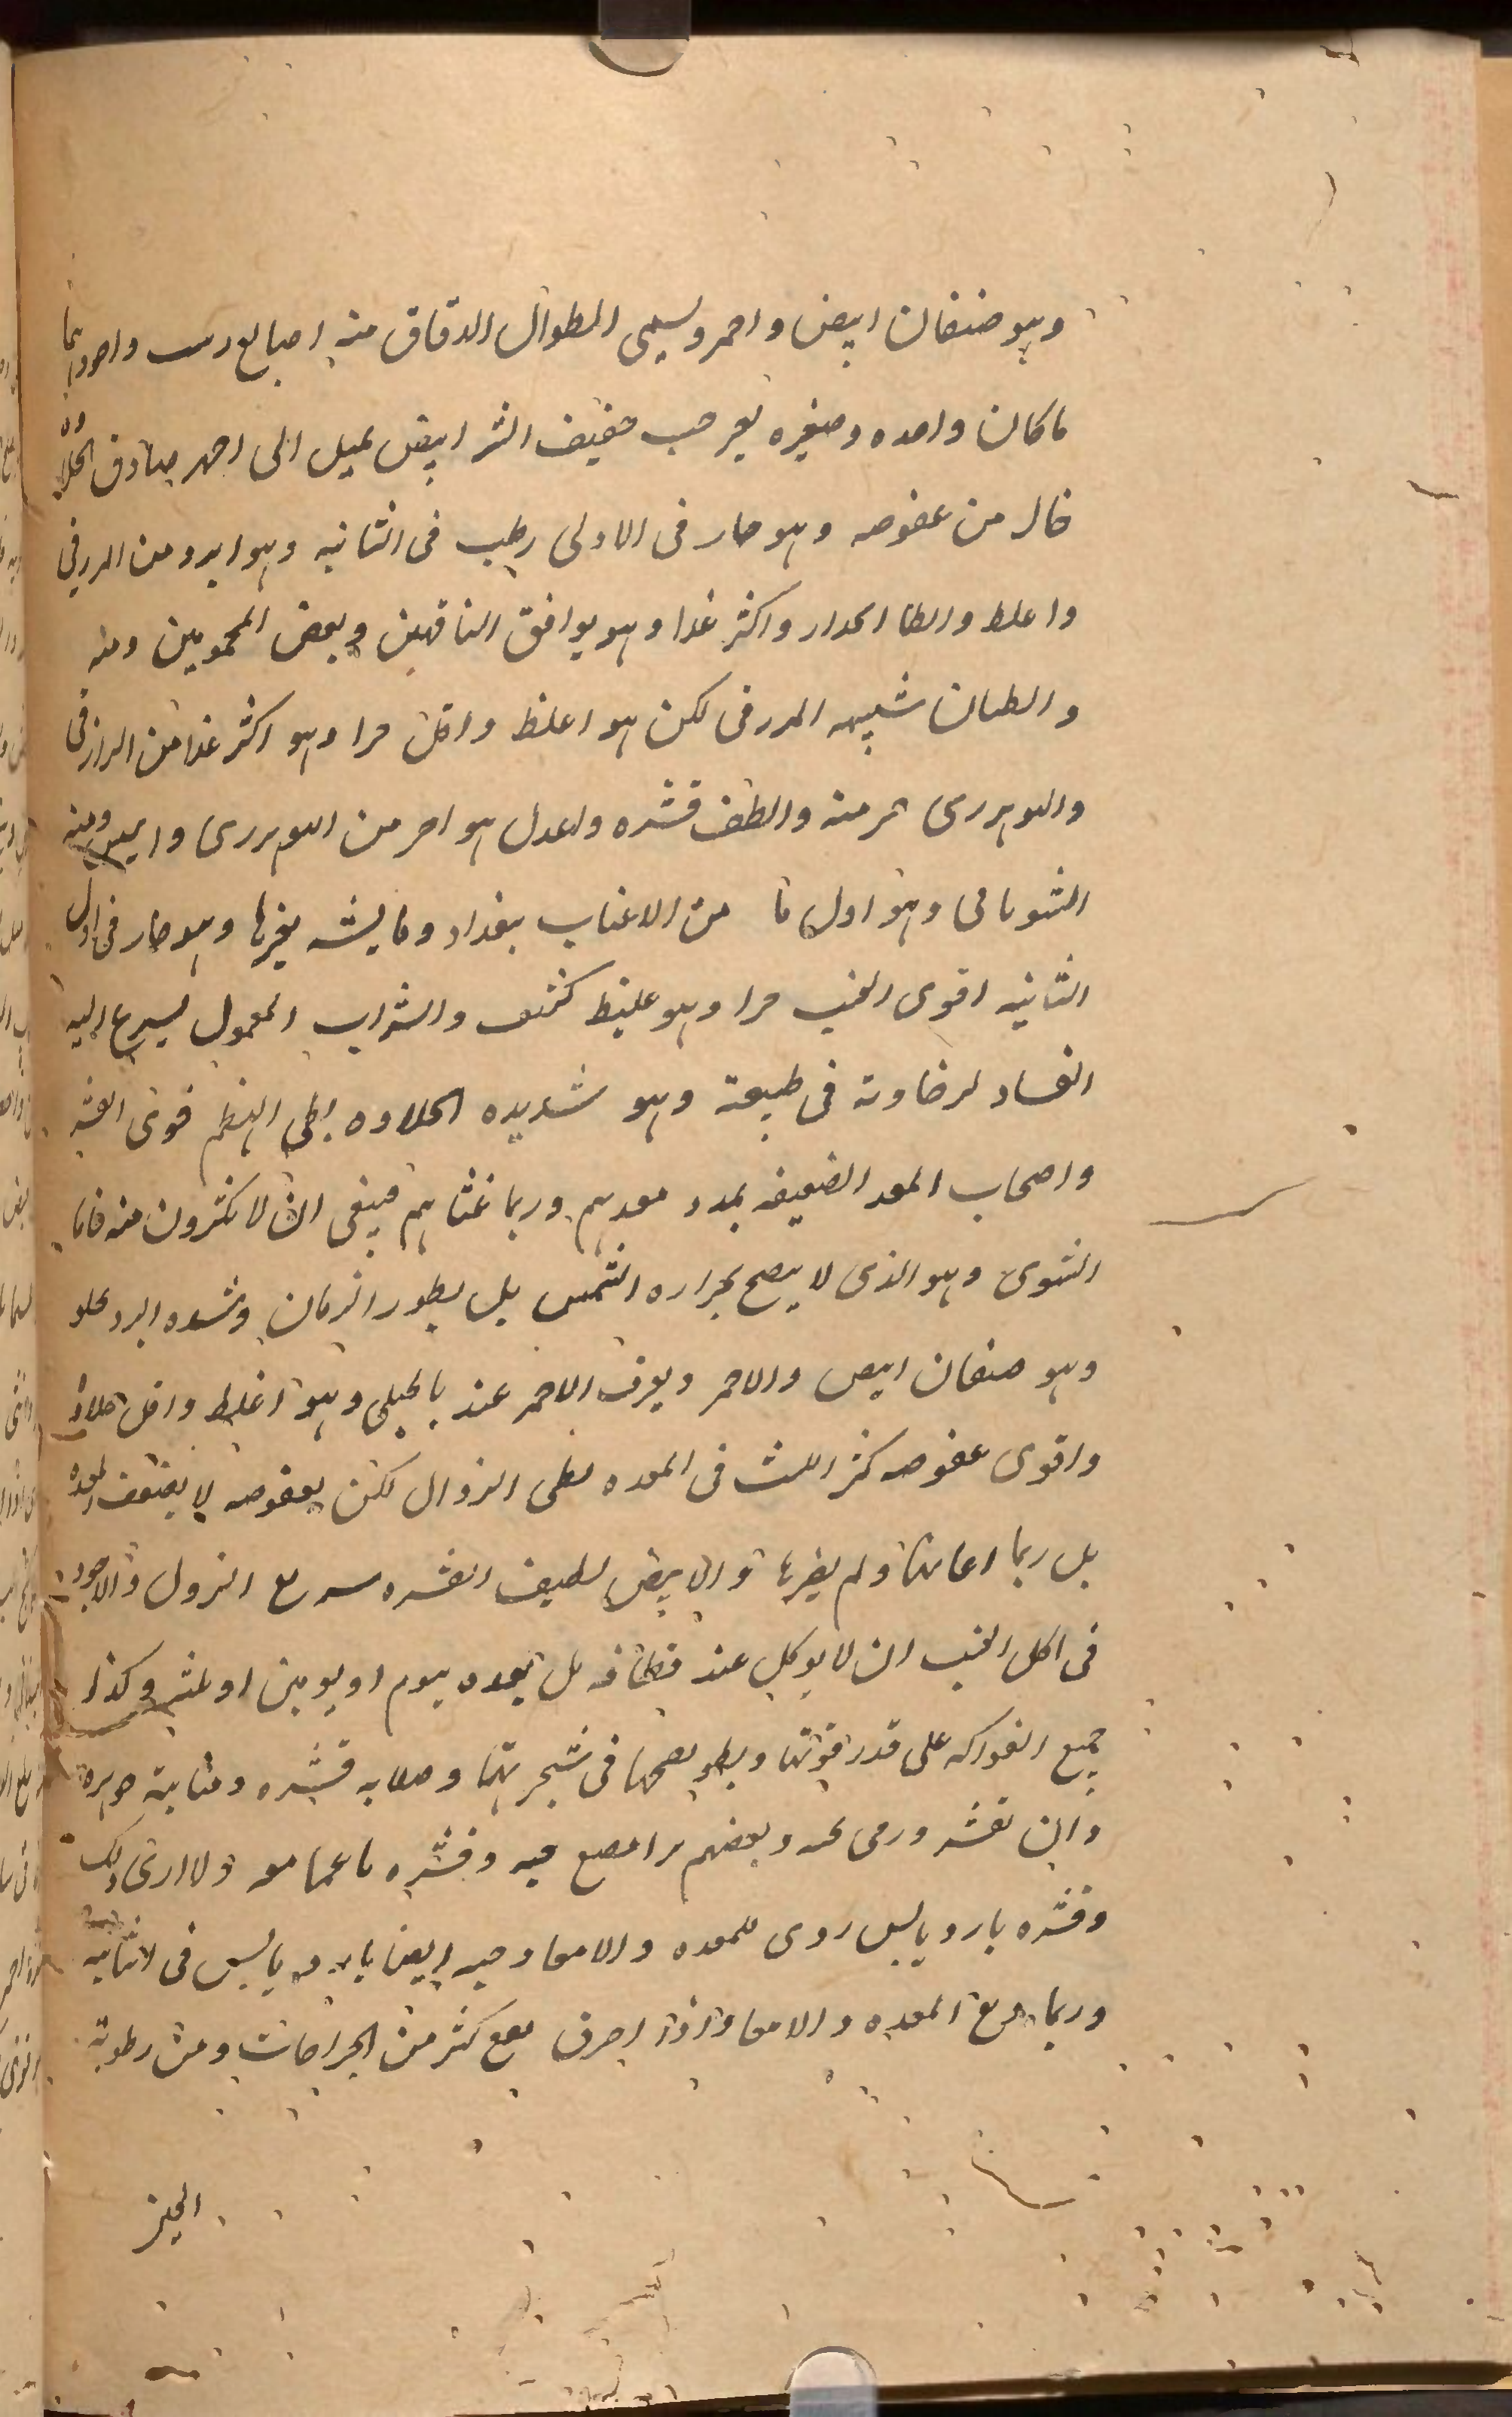 وهو صنفان ابيض واحمر ويسمى المطوال الدقاق منه اصابع واجودها
ما كان واحده وصغيره بعر حب خفيف القشر ابيض يميل الى احمر صادق الحلاوه
خال من عفوصه وهو حار فى الاولى رطب فى الثانيه وهو ابرد من الررقى
واغلظ وابطا انحدار واكثر غذا وهو يوافق الناقهين وبعض المحمومين ومنه
والطبان شبيه الررقى لكن هو اغلظ واقل حرا وهو اكثر غذا من الرازقى
احر منه والطف قشره واعدل هو احر من وايبس ومنه
وهو اول ما من الاعناب ببغداد وما يشبه بغيرها وهو حار فى اول
الثانيه اقوى العنب حرا وهو غليظ كثيف والشراب المعمول يسرع اليه
الفساد لرخاوته فى طبيعة وهو شديده الحلاوه بطى الهضم قوى القشر
واصحاب المعد الضعيفه يمدد معدهم وربما غثاهم فينبغى ان لا يكثرون منه فاما
الشتوى وهو الذى لا ينضج بحراره الشمس بل بطور الزمان وشده البرد يحلو
وهو صنفان ابيض والاحمر ويعرف الاحمر عند بالجبلى وهو اغلظ واقل حلاوة
واقوى عفوصه كثر اللبث فى المعده بطى النزوال لكن بعفوصه لا يضعف المعده
بل ربما اعانها ولم يضرها و الابيض لطيف القشره سريع النزول والاجود
فى اكل العنب ان لا يوكل عند قطافه بل بعده بيوم او يومين او ثلثه وكذا
جميع الفواكه على قدر قوتها وبطو نضجها فى شجرتها وصلابه قشره ومتانة جوهره
وان تقشر ورمى وبعضهم يرا مضع حبه وقشره ناعما معه ولا ارى ذلك
وقشره بارد يابس ردى للمعده والامعا وحبه ايضا بارد يابس فى الثانيه
وربما المعده والامعا واذا احرق نفع كثر من الجراحات ومن رطوبة
الجبنز